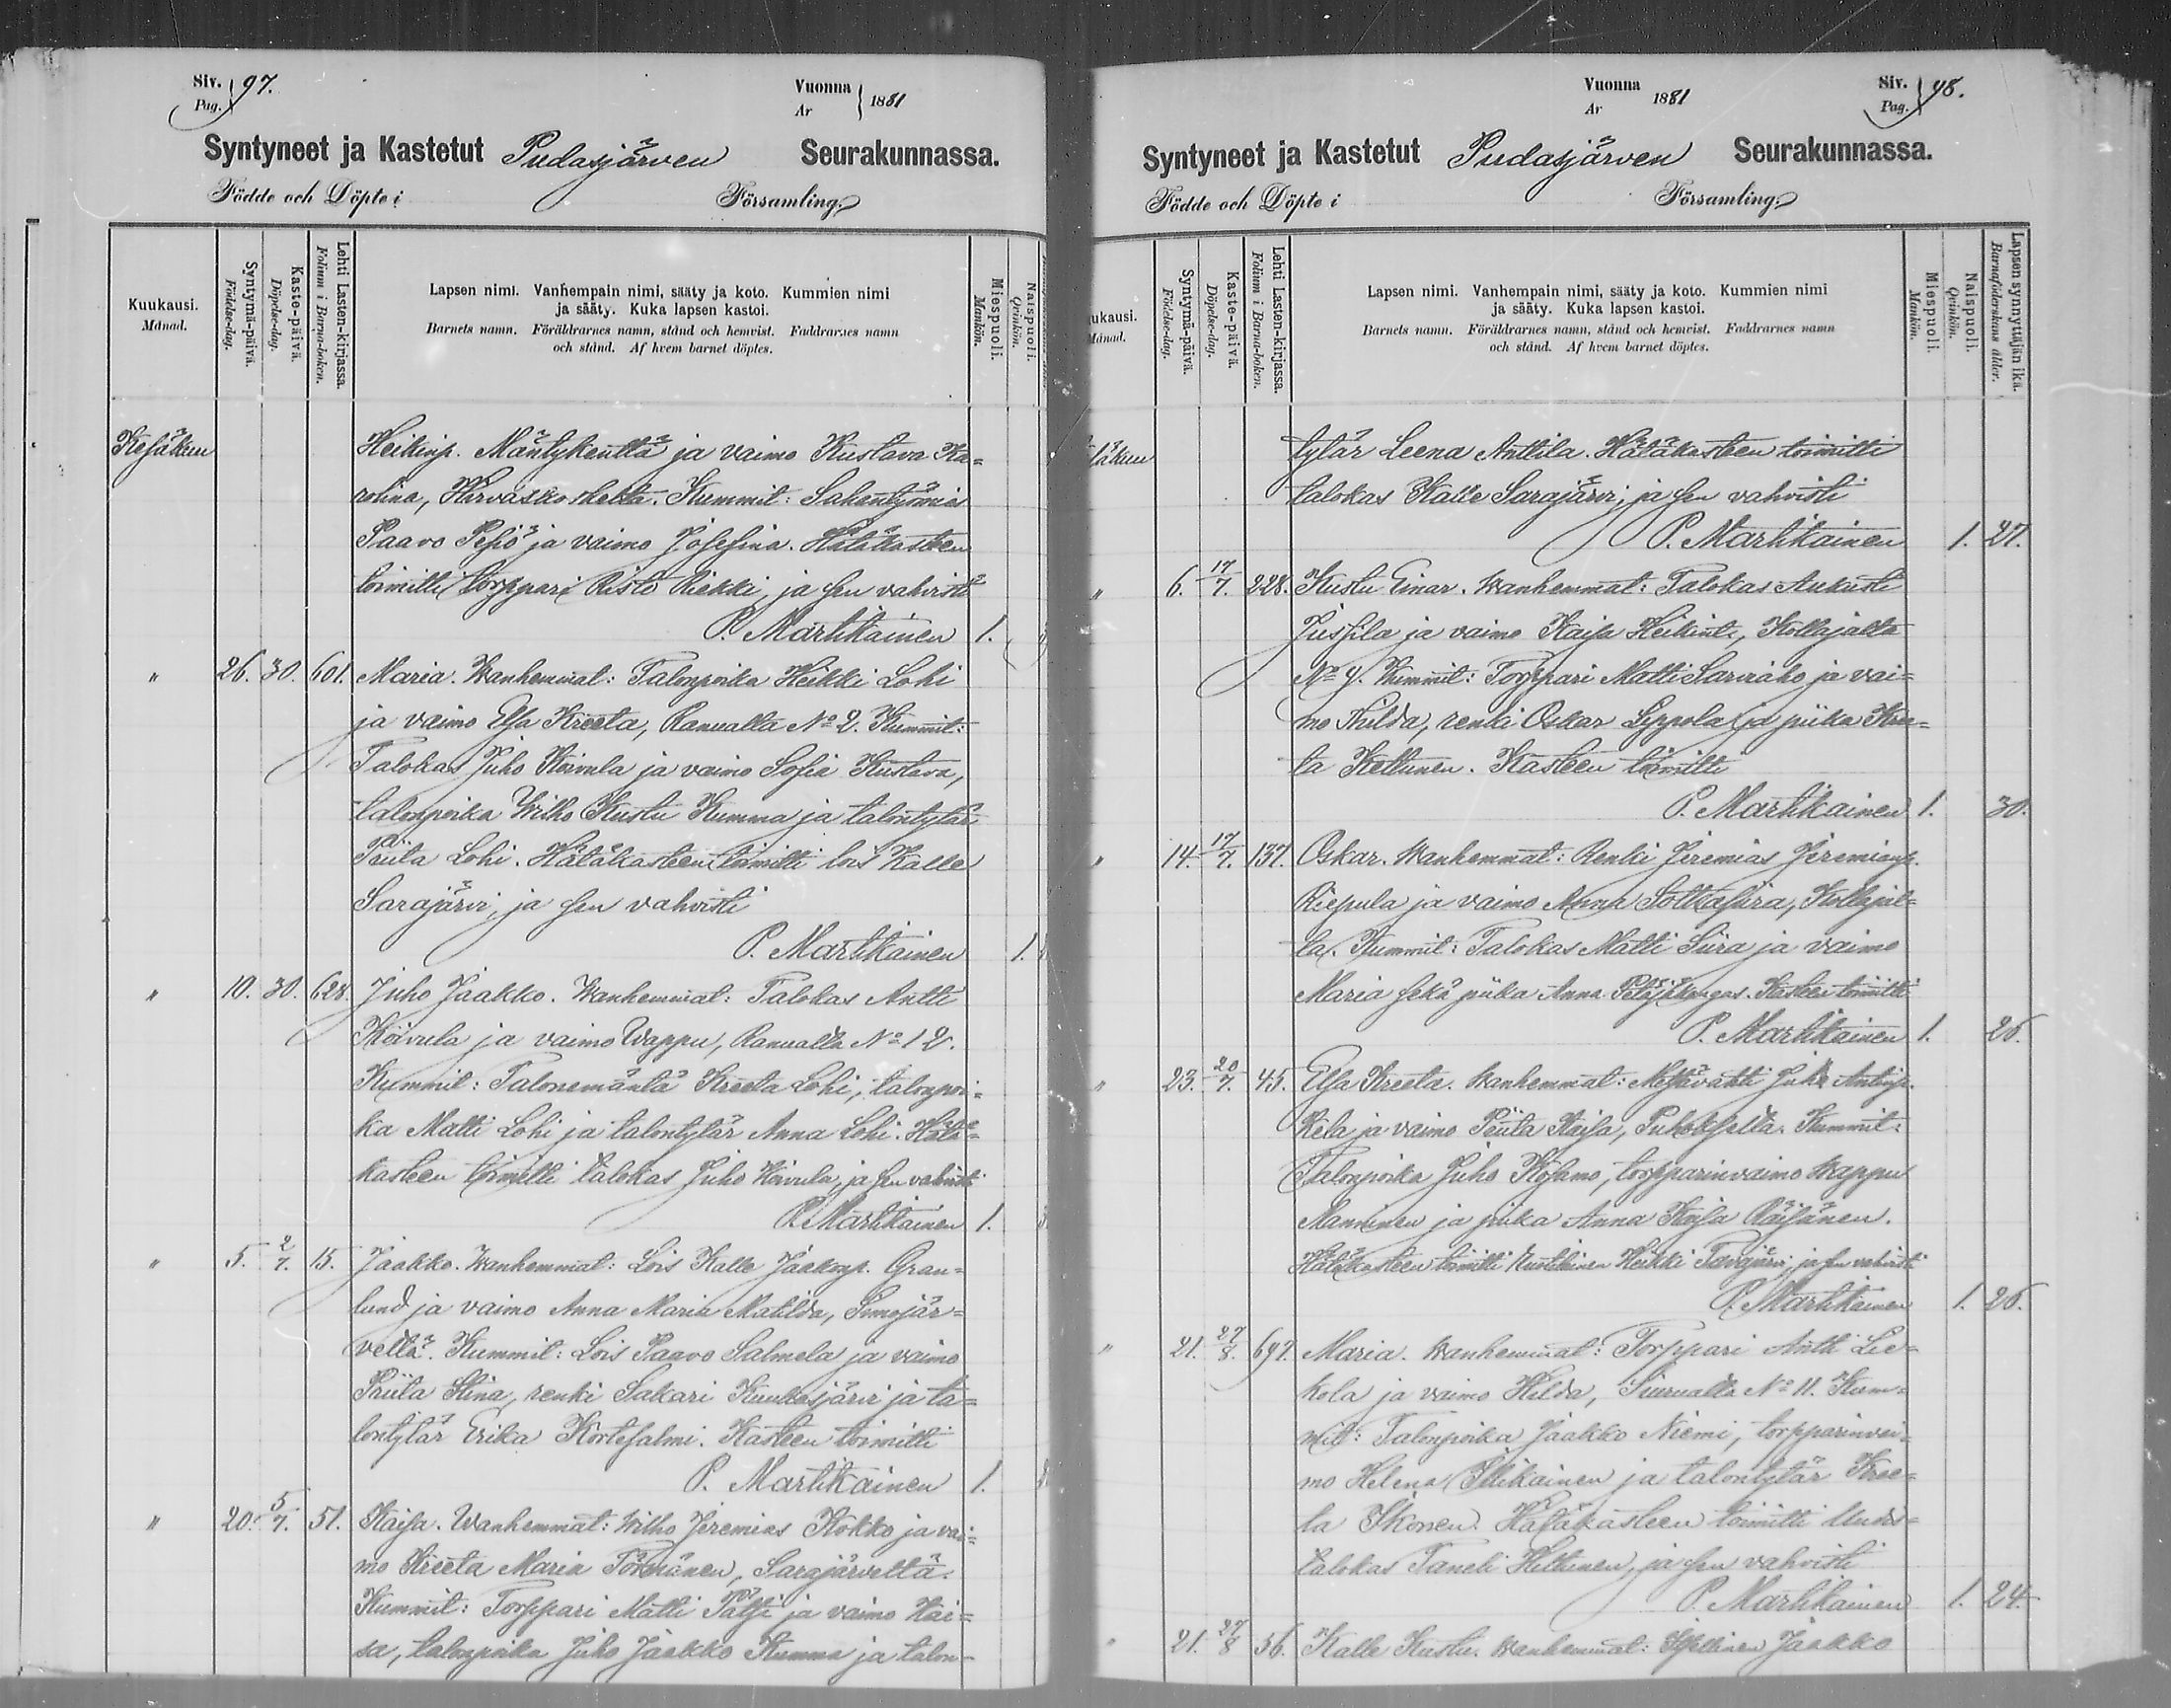 Siv. 97.
Pag.
Vuonna 1881
Ar
Syntyneet ja Kastetut Pudasjärven Seurakunnassa.
Födde och Döpte i Församling.
Kuukausi.
Månad.
Syntymä-päivä.
Födelse-dag.
Kaste-päivä.
Döpelse-dag.
Lehti Lasten-kirjassa.
Folium i Barna-boken.
Lapsen nimi. Vanhempain nimi, sääty ja koto. Kummien nimi
ja sääty. Kuka lapsen kastoi.
Barnets namn. Föräldrarnes namn, stånd och hemvist. Faddrarnes namn
och stånd. Af hvem barnet döptes.
Miespuoli.
Mankön.
Naispuoli.
Qvinkön.
Kesäkuu Heikinp. Mäntykenttä ja vaimo Kustava Ka=
rolina, Kummit: Sahantyömies
Paavo Pesiö ja vaimo Josefina. Hätäkasteen
toimitti torppari Risto Riekki, ja sen vahvisti
P. Martikainen 1.
" 26. 30. 601. Maria. Wanhemmat: Talonpoika Heikki Lohi
ja vaimo Elsa Kreeta, Ranualla No 2. Kummit:
Talokas Juho Koivula ja vaimo Sofia Kustava,
talonpoika Wilho Kustu Kumma ja talontytär
Priita Lohi. Hätäkasteen toimitti lois Kalle
Sarajärvi, ja sen vahvisti
P. Martikainen 1.
" 10. 30. 628. Juho Jaakko. Wanhemmat: Talokas Antti
Koivula ja vaimo Wappu, Ranualla No 12.
Kummit: Talonemäntä Kreeta Lohi, talonpoi=
ka Matti Lohi ja talontytär Anna Lohi. Hätä=
kasteen toimitti talokas Juho Koivula, ja sen vahvisti
P. Martikainen 1.
" 5. 2/7. 15. Jaakko. Wanhemmat: Lois Kalle Jaakonp. Gran=
lund ja vaimo Anna Maria Matilda, Simojär=
vellä. Kummit: Lois Paavo Salmela ja vaimo
Priita Stina, renki Sakari Kuukasjärvi ja ta=
lontytär Erika Kortesalmi. Kasteen toimitti
P. Martikainen 1.
" 20. 5/7. 51. Kaisa. Wanhemmat: Wilho Jeremias Kokko ja vai=
mo Kreeta Maria Törmänen, Sarajärvellä.
Kummit: Torppari Matti Pätsi ja vaimo Kai=
sa, talonpoika Juho Jaakko Kumma ja talon=
Vuonna 1881
Ar
Siv. 98.
Pag.
Syntyneet ja Kastetut Pudasjärven Seurakunnassa.
Födde och Döpte i Församling.
ukausi.
Månad.
Syntymä-päivä.
Födelse-dag.
Kaste-päivä.
Döpelse-dag.
Lehti Lasten-kirjassa.
Folium i Barna-boken.
Lapsen nimi. Vanhempain nimi, sääty ja koto. Kummien nimi
ja sääty. Kuka lapsen kastoi.
Barnets namn. Föräldrarnes namn, stånd och hemvist. Faddrarnes namn
och stånd. Af hvem barnet döptes.
Miespuoli.
Mankön.
Naispuoli.
Qvinkön.
Lapsen synnyttäjän ikä.
Barnaföderskans ålder.
säkuu tytär Leena Anttila. Hätäkasteen toimitti
talokas Kalle Sarajärvi, ja sen vahvisti
P. Martikainen 1. 27.
" 6. 17/7. 228. Kustu Einar. Wanhemmat: Talokas Aukusti
Jussila ja vaimo Kaisa Heikint., Kollajalla
No 4. Kummit: Torppari Matti Sariaho ja vai=
mo Hilda, renki Oskar Leppola ja piika Kree=
ta Kettunen. Kasteen toimitti
P. Martikainen 1. 30.
" 14. 17/7. 137. Oskar. Wanhemmat: Renki Jeremias Jeremianp.
Riepula ja vaimo Anna Siira, Kollajal=
la. Kummit: Talokas Matti Siira ja vaimo
Maria sekä piika Anna Petäjäkangas. Kasteen toimitti
P. Martikainen 1. 26.
" 23. 20/7. 45. Elsa Kreeta. Wanhemmat: Metsävahti Juho Antinp.
Kela ja vaimo Priita Kaisa, Puhoksella. Kummit:
Talonpoika Juho Kosamo, torpparinvaimo Wappu
Manninen ja piika Anna Kaisa Räisänen.
Hätäkasteen toimitti Heikki Tavajärvi, ja sen vahvisti
P. Martikainen 1. 26.
" 21. 27/8. 697. Maria. Wanhemmat: Torppari Antti Lie=
kola ja vaimo Hilda, Siurualla No 11. Kum=
mit: Talonpoika Jaakko Niemi, torpparinvai=
mo Helena Illikainen ja talontytär Kree=
ta Ikonen. Hätäkasteen toimitti Uudis=
talokas Taneli Hiltunen, ja sen vahvisti
P. Martikainen 1. 24.
" 21. 27/8 56. Kalle Kustu. Wanhemmat: Itsellinen Jaakko